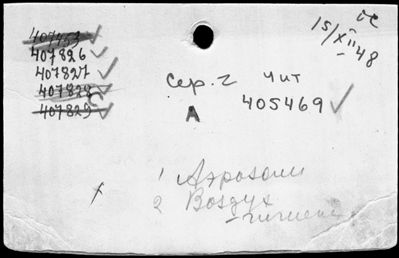 407453
407826
407827
407828
407829
15/XII 48
Сер. 2 Чит
А 405469
1 Аэрозоли
2 Воздух